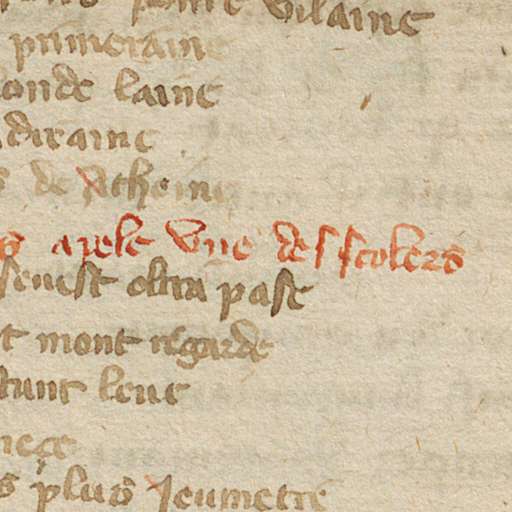 vilaine
primeraine
onde laine
diraine
s de Atheine
arele vne des scolers
seuist oltra pase
t mont regarde
tunt leue
nece
s plus Jeumetre